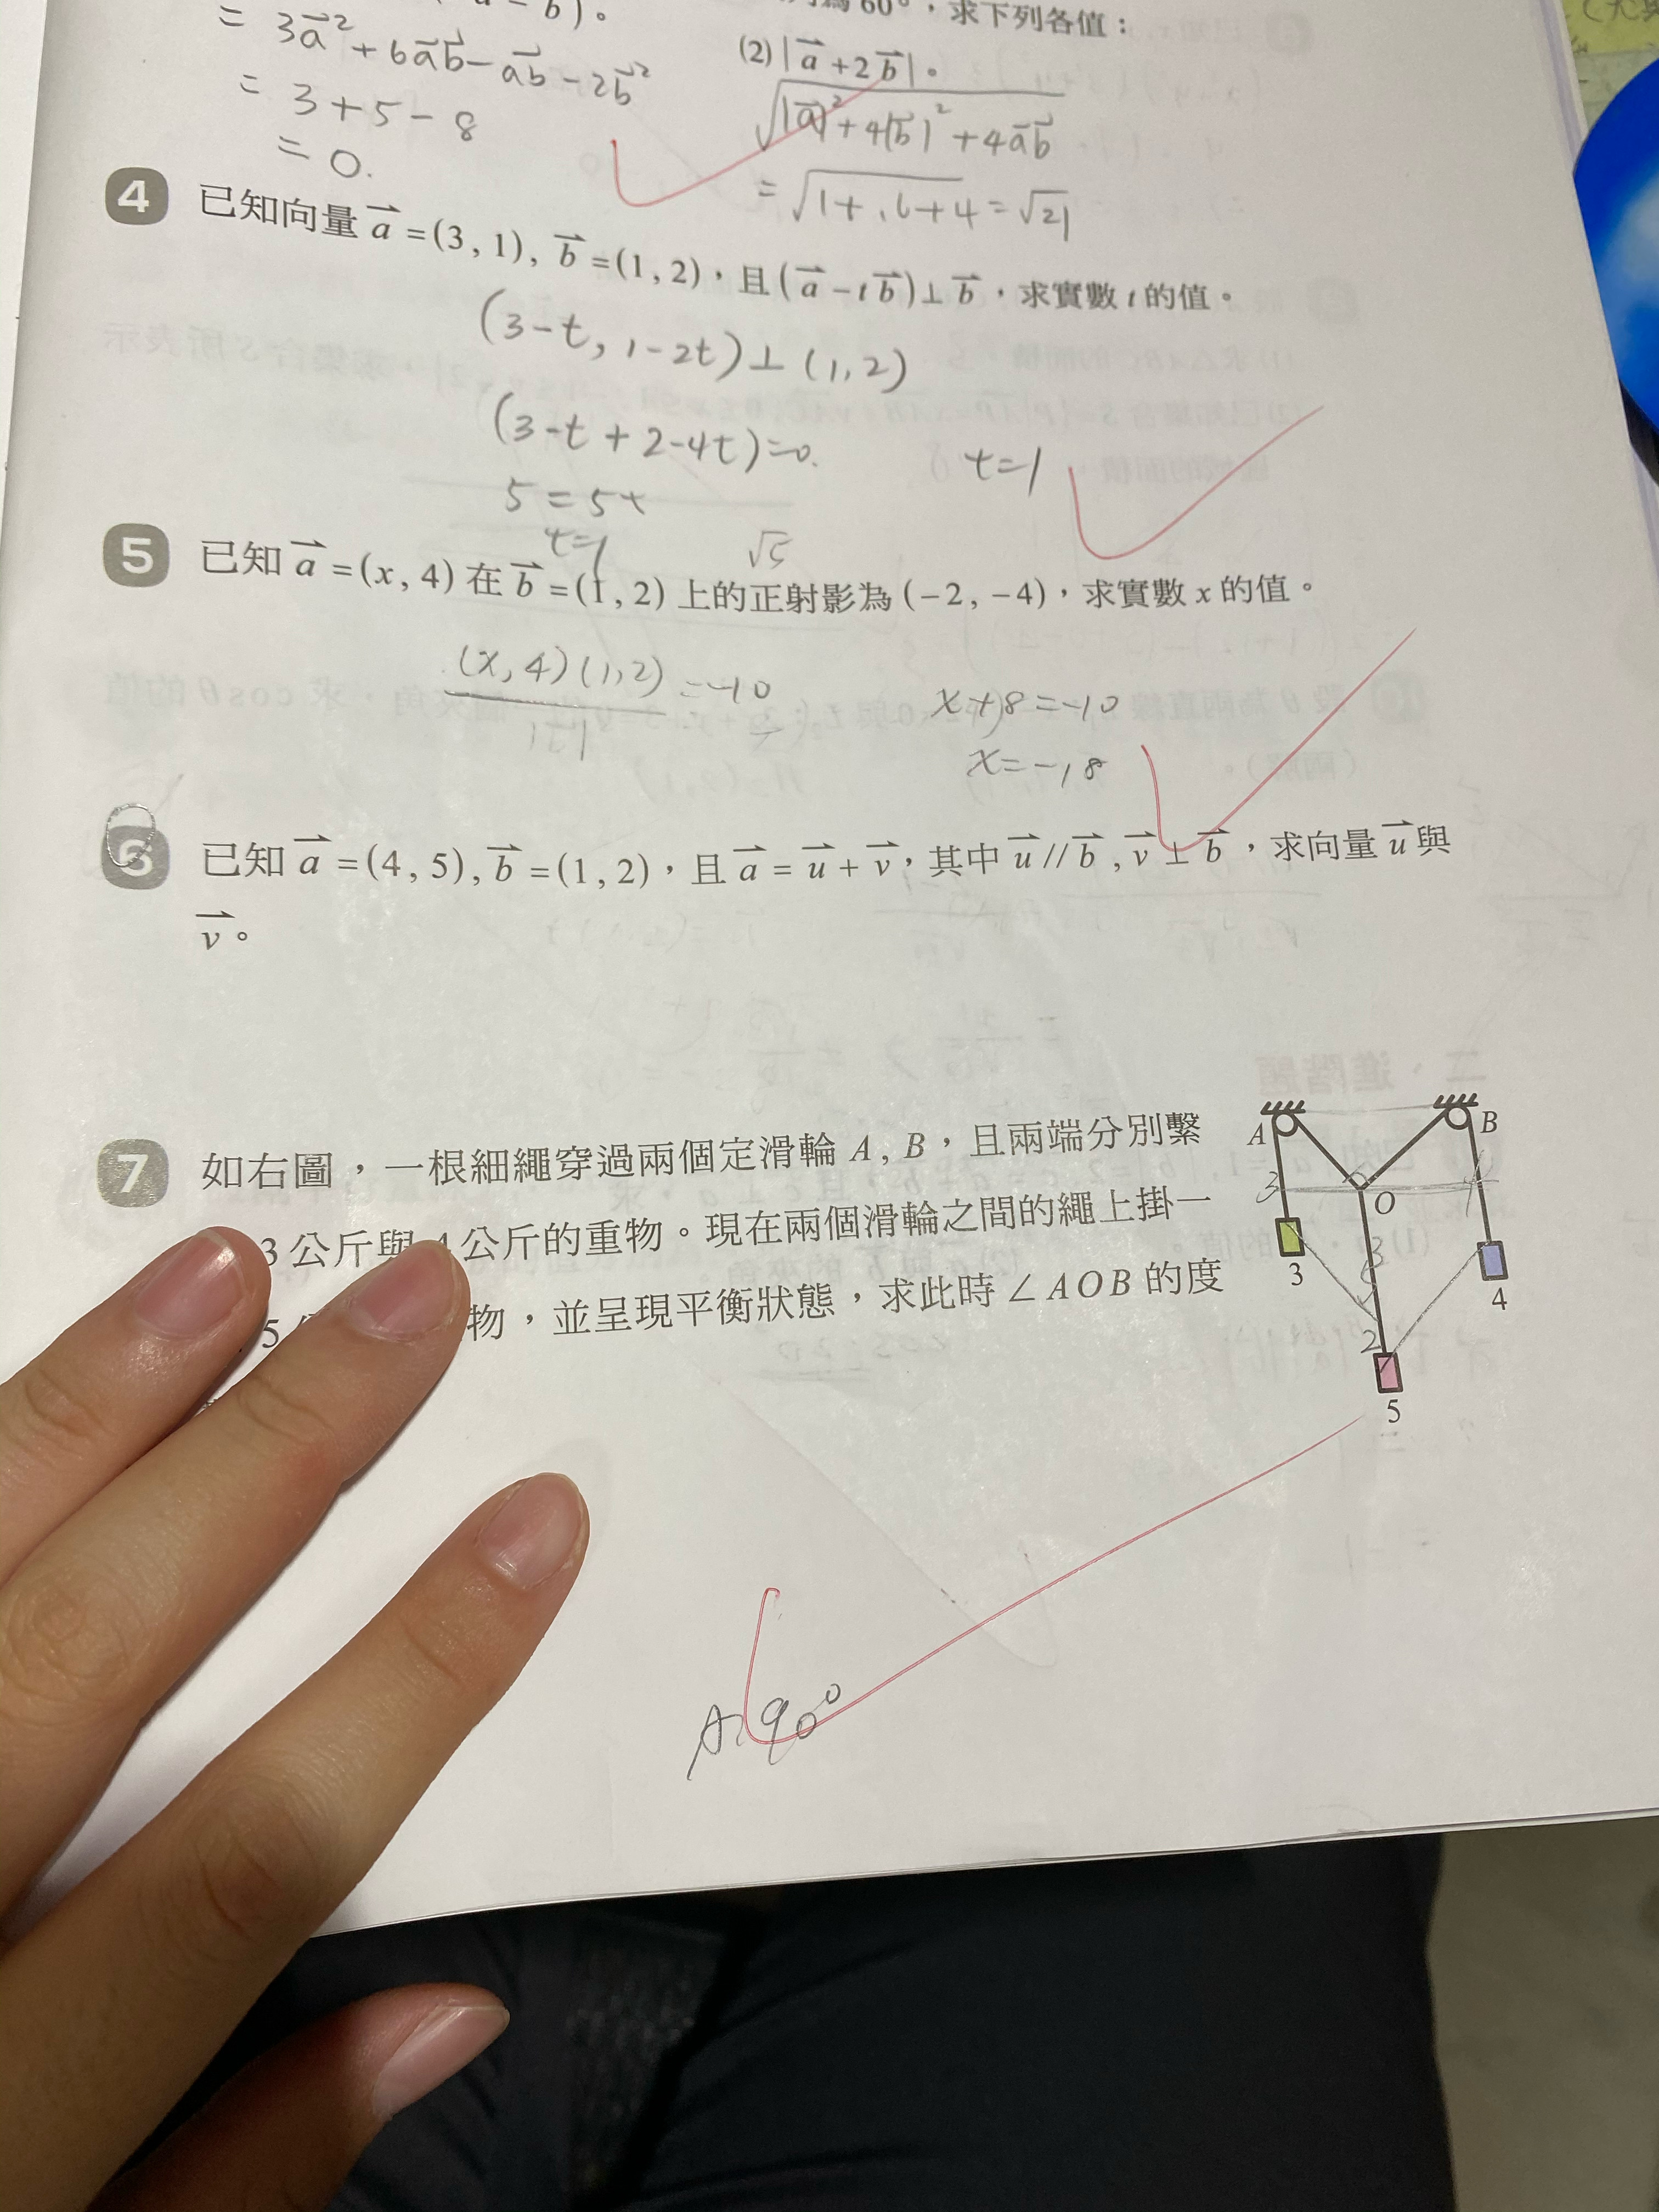 = 3a⃗² + 6a⃗b⃗ - a⃗b⃗ - 2b⃗²
= 3+5-8
= 0.
60°，求下列各值：
(2) |a⃗+2b⃗|。
√(|a⃗|²+4|b⃗|²+4a⃗b⃗)
= √(1+16+4) = √21
4 已知向量 a⃗=(3,1), b⃗=(1,2)，且(a⃗-tb⃗)⊥b⃗，求實數 t 的值。
(3-t, 1-2t)⊥(1,2)
(3-t+2-4t)=0.
5=5t
t=1
t=1
√5
5 已知 a⃗=(x,4) 在 b⃗=(1,2) 上的正射影為 (-2,-4)，求實數 x 的值。
(x,4)(1,2) = -10
x+8=-10
x=-18
6 已知 a⃗=(4,5), b⃗=(1,2)，且 a⃗=u⃗+v⃗，其中 u⃗//b⃗, v⃗⊥b⃗，求向量 u⃗ 與
v⃗。
7 如右圖，一根細繩穿過兩個定滑輪 A, B，且兩端分別繫
3 公斤與 4 公斤的重物。現在兩個滑輪之間的繩上掛一
5 物，並呈現平衡狀態，求此時∠AOB 的度
A
B
O
3
4
3
2
3
4
5
A: 90°